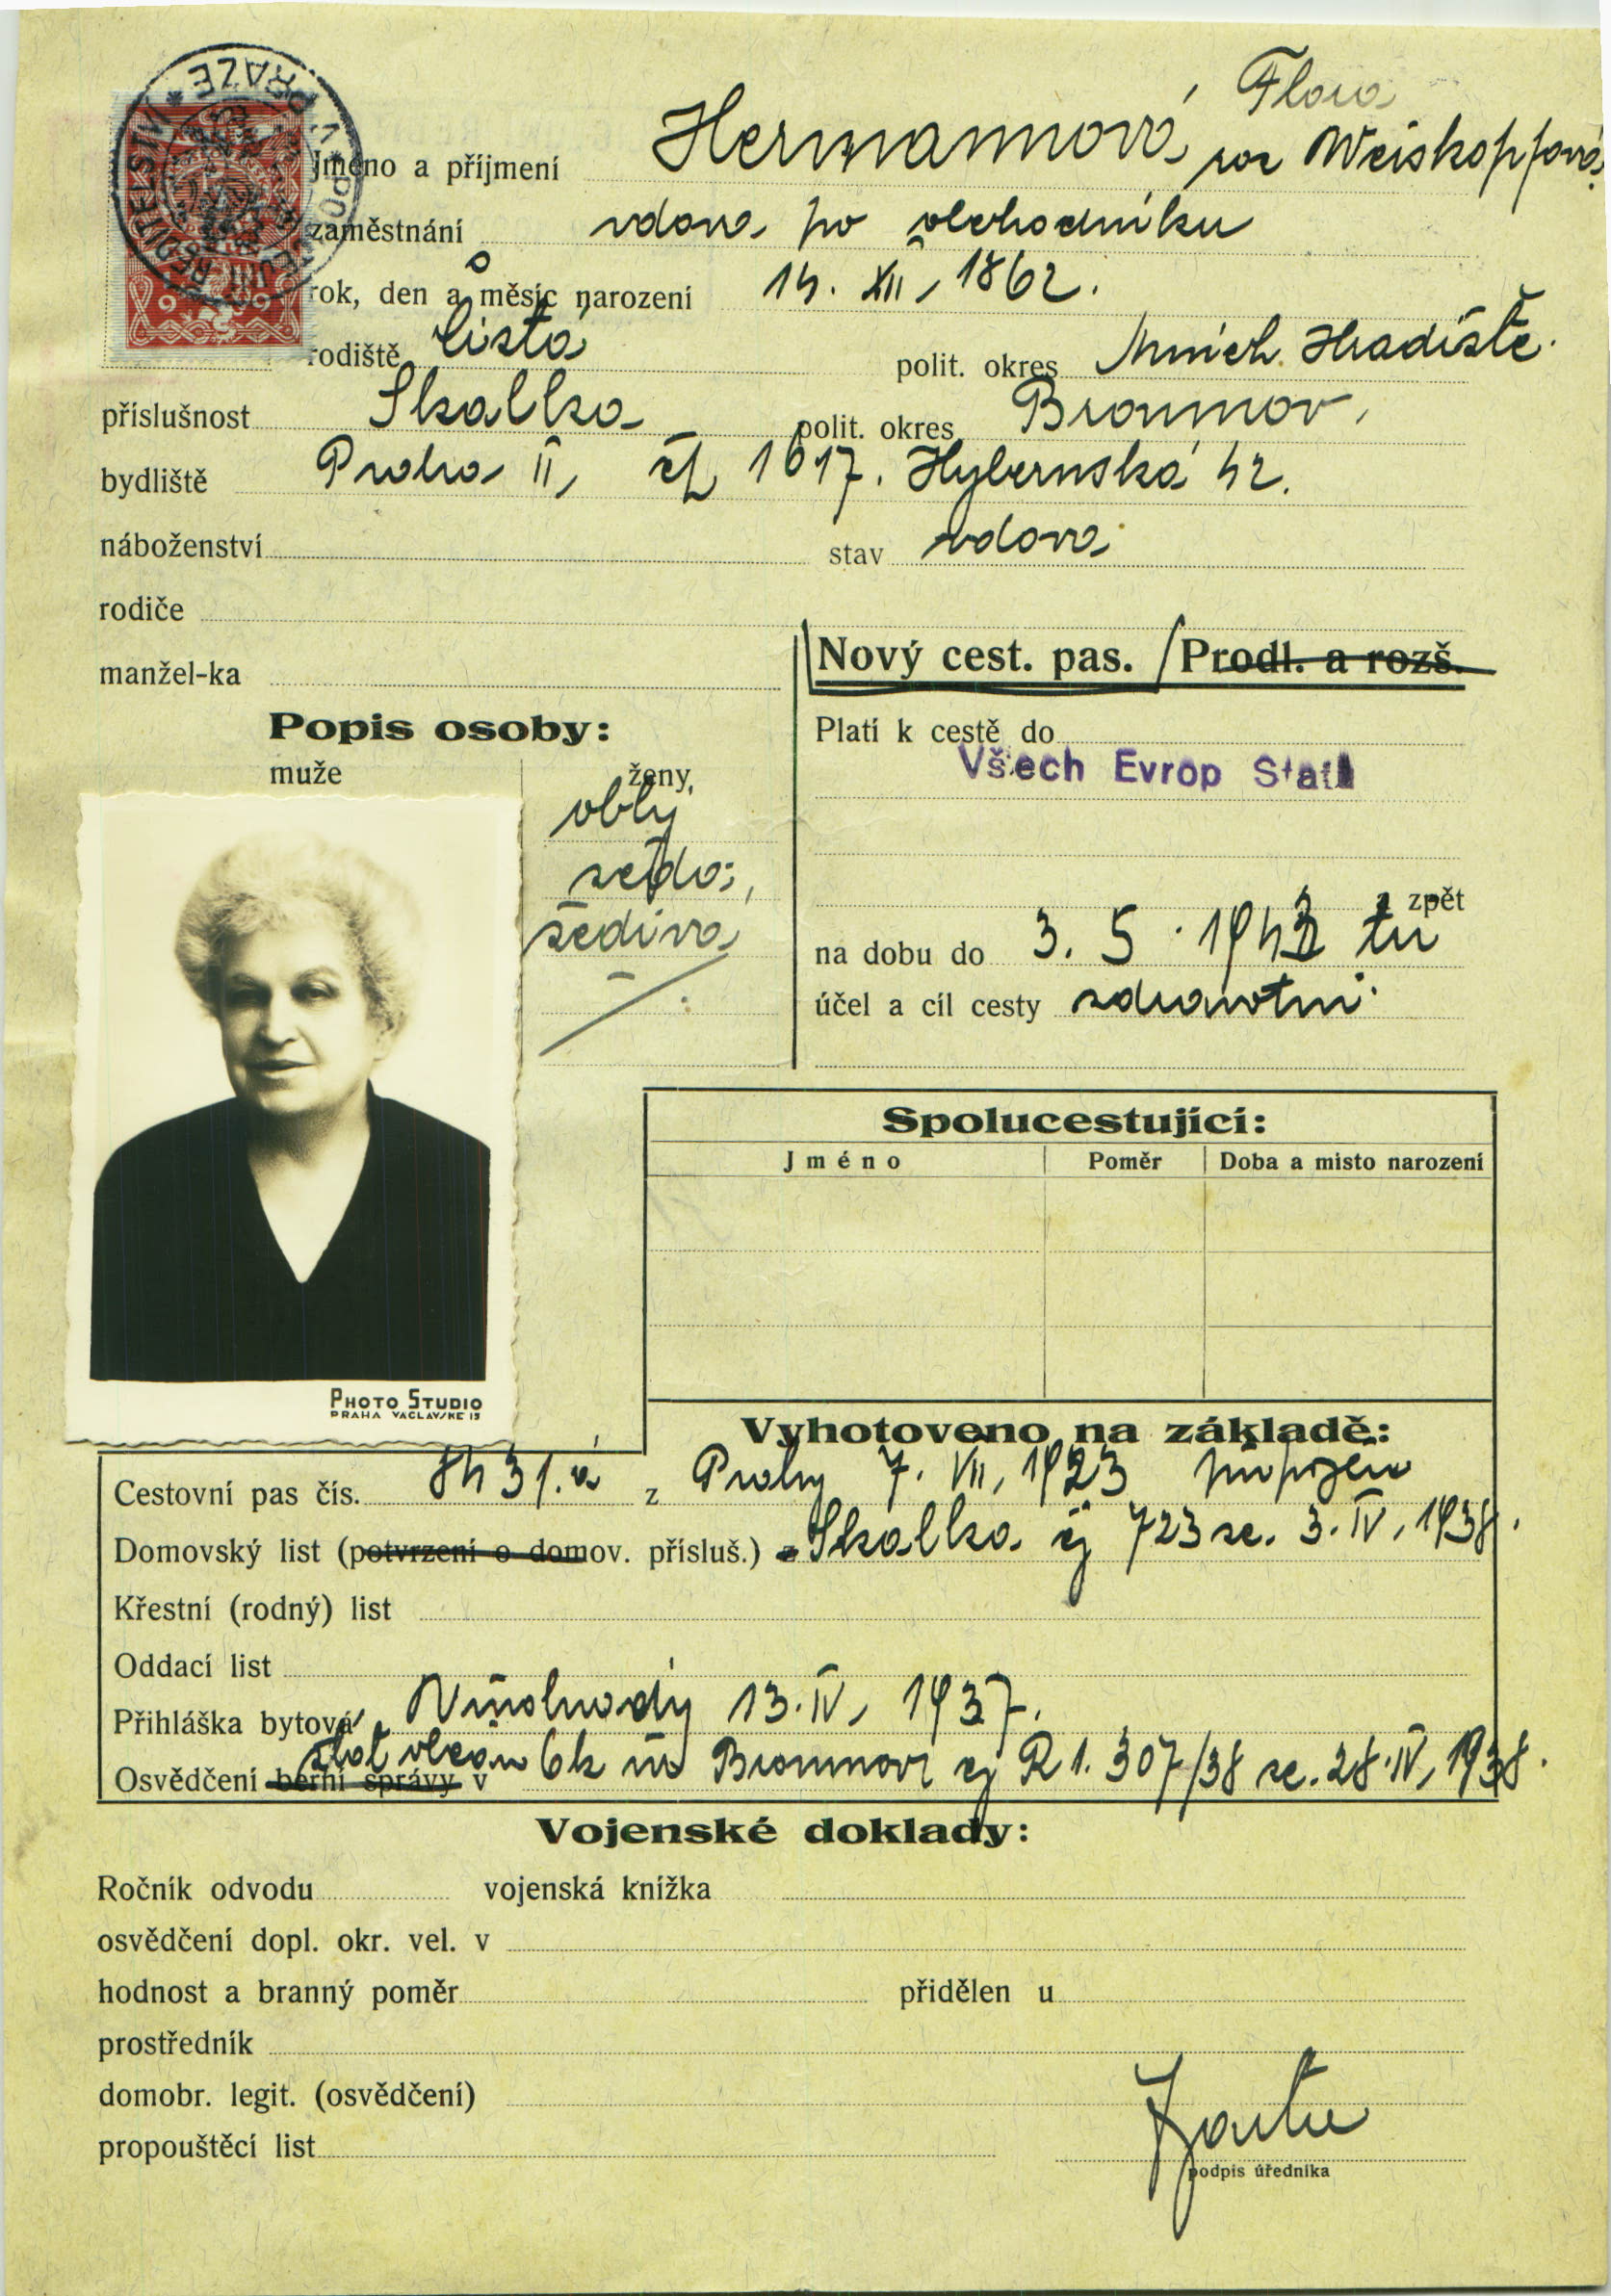 Flora
Jméno a příjmení Hermannová, roz Weiskopfová
zaměstnání vdova po obchodníku
rok, den a měsíc narození 14. XII, 1862.
rodiště Čistá polit. okres Mnich. Hradiště.
příslušnost Skalka polit. okres Broumov,
bydliště Praha II, čp 1617. Hybernská 42.
náboženství stav vdova
rodiče
manžel-ka
Nový cest. pas. / Prodl. a rozš.
Popis osoby:
muže ženy
oblý
šedá
šedivá
Platí k cestě do
Všech Evrop Stat
a zpět
na dobu do 3. 5. 1943
účel a cíl cesty zdravotní
Spolucestující:
Jméno Poměr Doba a misto narození
PHOTO STUDIO
PRAHA VACLAVSKE 15
Vyhotoveno na základě:
Cestovní pas čís. 8431. a z Prahy 7. VII, 1923 připojen
Domovský list (potvrzení o domov. přísluš.) Skalka čj 723 ze. 3. IV, 1938.
Křestní (rodný) list
Oddací list
Přihláška bytová Vinohrady 13. IV, 1937.
Osvědčení berní správy v Broumov čj R 1. 307/38 ze. 28. IV, 1938.
Vojenské doklady:
Ročník odvodu vojenská knížka
osvědčení dopl. okr. vel. v
hodnost a branný poměr přidělen u
prostředník
domobr. legit. (osvědčení)
propouštěcí list
podpis úředníka